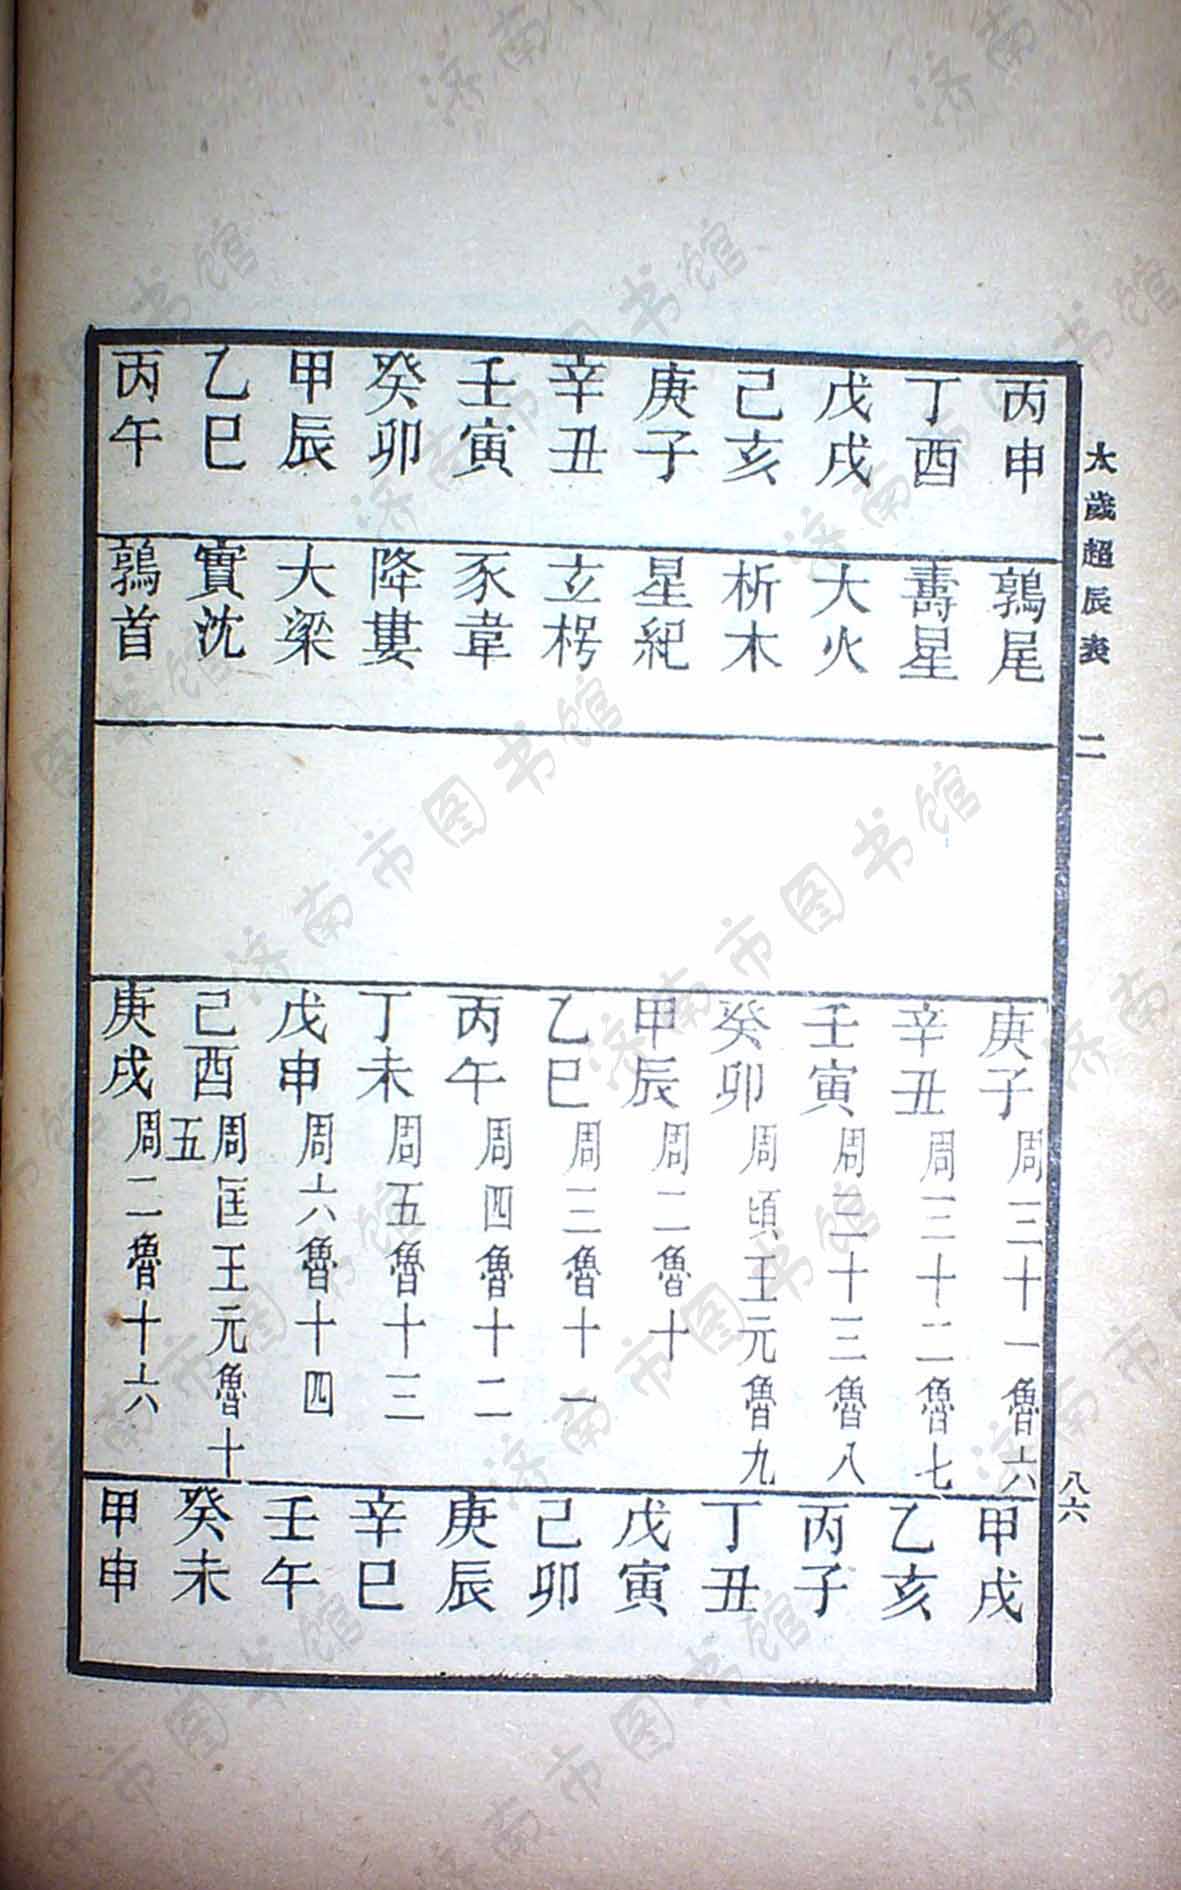 太歲超辰表 二 八六
丙申 鶉尾 庚子 周三十一魯六 甲戌
丁酉 壽星 辛丑 周三十二魯七 乙亥
戊戌 大火 壬寅 周三十三魯八 丙子
己亥 析木 癸卯 周頃王元魯九 丁丑
庚子 星紀 甲辰 周二魯十 戊寅
辛丑 玄枵 乙巳 周三魯十一 己卯
壬寅 豕韋 丙午 周四魯十二 庚辰
癸卯 降婁 丁未 周五魯十三 辛巳
甲辰 大梁 戊申 周六魯十四 壬午
乙巳 實沈 己酉 周匡王元魯十五 癸未
丙午 鶉首 庚戌 周二魯十六 甲申
济南市图书馆